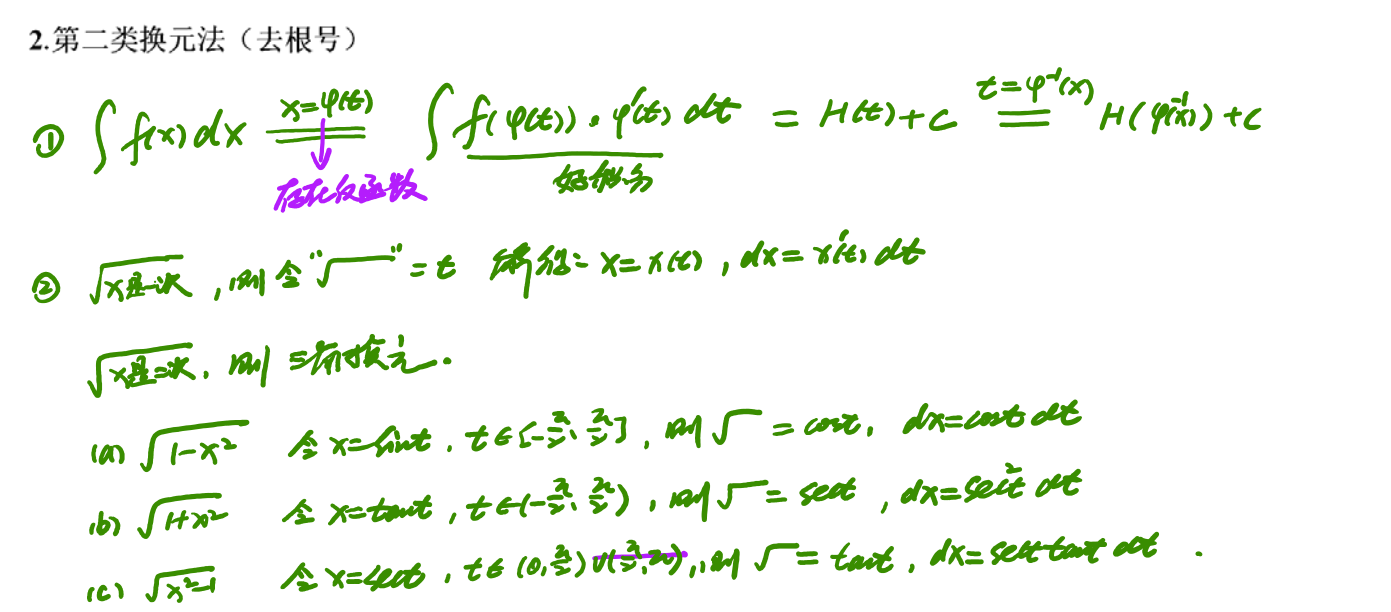 2.第二类换元法（去根号）
① ∫f(x)dx x=φ(t) ∫f(φ(t))·φ'(t)dt = H(t)+C t=φ⁻¹(x) H(φ⁻¹(x))+C
存在反函数 好积分
② √x是一次，则令"√ "=t 解得: x=x(t), dx=x'(t)dt
√x是二次，则三角换元.
(a) √1-x² 令x=sint, t∈[-π/2, π/2], 则√ =cost, dx=cost dt
(b) √1+x² 令x=tant, t∈(-π/2, π/2), 则√ =sect, dx=sec²t dt
(c) √x²-1 令x=sect, t∈(0, π/2)∪(π/2, π), 则√ =tant, dx=sect tant dt.